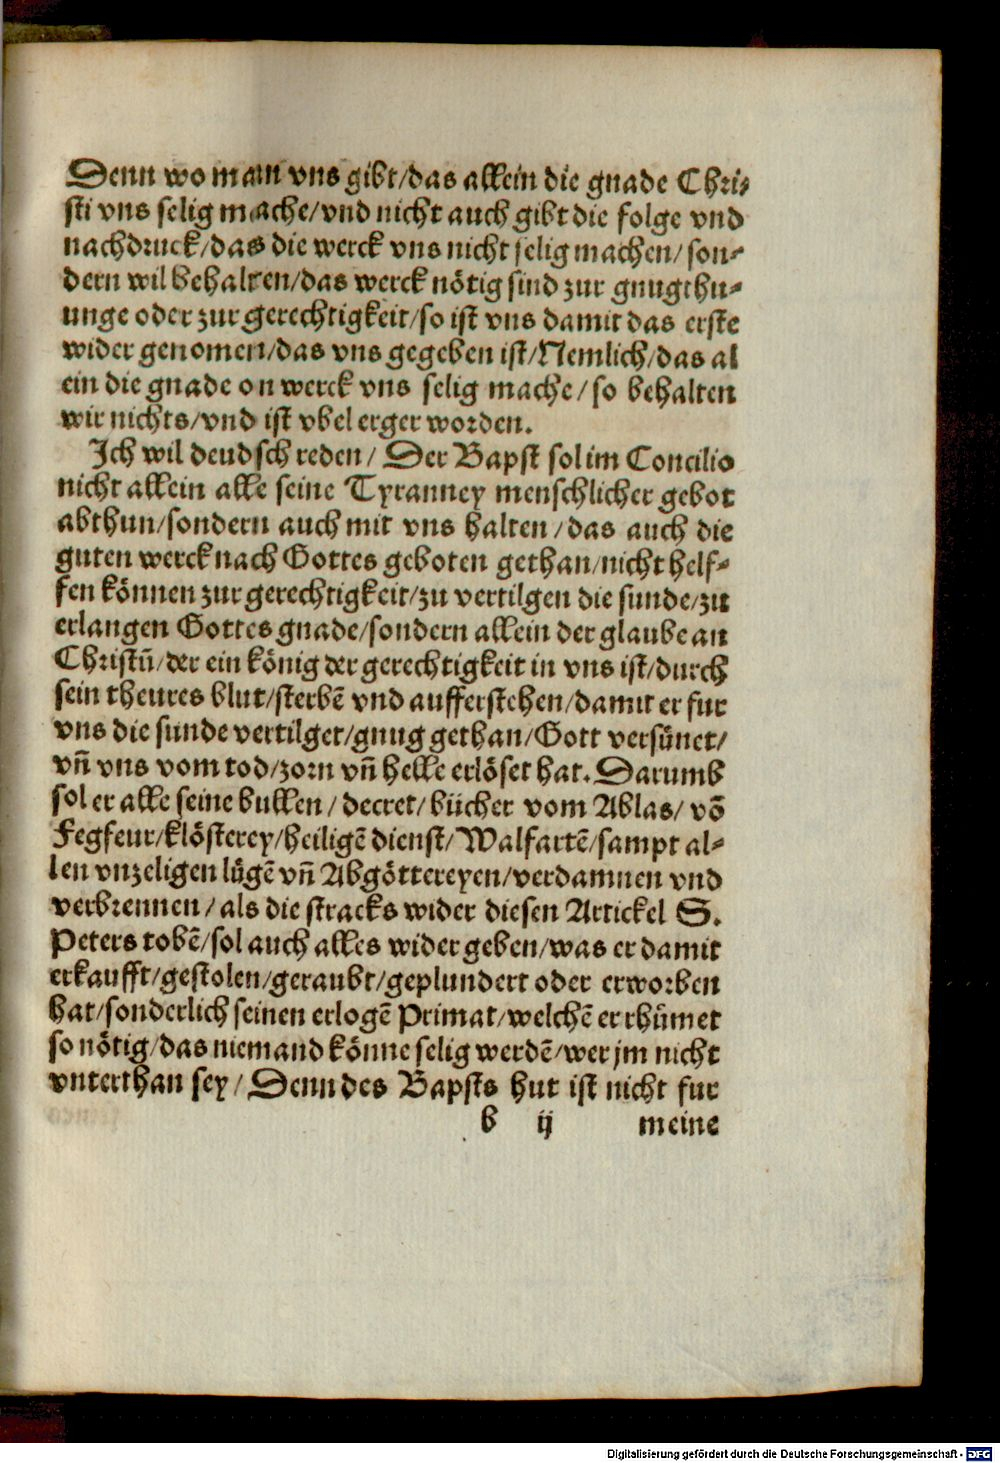 Denn wo man vns gibt/das allein die gnade Chri-
sti vns selig mache/vnd nicht auch gibt die folge vnd
nachdruck/das die werck vns nicht selig machen/son-
dern wil behalten/das werck nötig sind zur gnugthu-
unge oder zur gerechtigkeit/so ist vns damit das erste
wider genomen/das vns gegeben ist/Nemlich/das al
ein die gnade on werck vns selig mache/so behalten
wir nichts/vnd ist vbel erger worden.
Ich wil deudsch reden/ Der Bapst sol im Concilio
nicht allein alle seine Tyranney menschlicher gebot
abthun/sondern auch mit vns halten/das auch die
guten werck nach Gottes geboten gethan/nicht helf-
fen können zur gerechtigkeit/zu vertilgen die sunde/zu
erlangen Gottes gnade/sondern allein der glaube an
Christū/der ein könig der gerechtigkeit in vns ist/durch
sein theures blut/sterbē vnd aufferstehen/damit er fur
vns die sunde vertilget/gnug gethan/Gott versünet/
vñ vns vom tod/zorn vñ helle erlöset hat. Darumb
sol er alle seine bullen/ decret/bücher vom Ablas/ vō
Fegfeur/klösterey/heiligē dienst/ Walfartē/sampt al-
len vnzeligen lügē vñ Abgöttereyen/verdamnen vnd
verbrennen/ als die stracks wider diesen Artickel S.
Peters tobē/sol auch alles wider geben/was er damit
erkaufft/gestolen/geraubt/geplundert oder erworben
hat/sonderlich seinen erlogē Primat/welchē er rhümet
so nötig/das niemand könne selig werdē/wer jm nicht
vnterthan sey/ Denn des Bapsts hut ist nicht fur
b ij meine
Digitalisierung gefördert durch die Deutsche Forschungsgemeinschaft - DFG